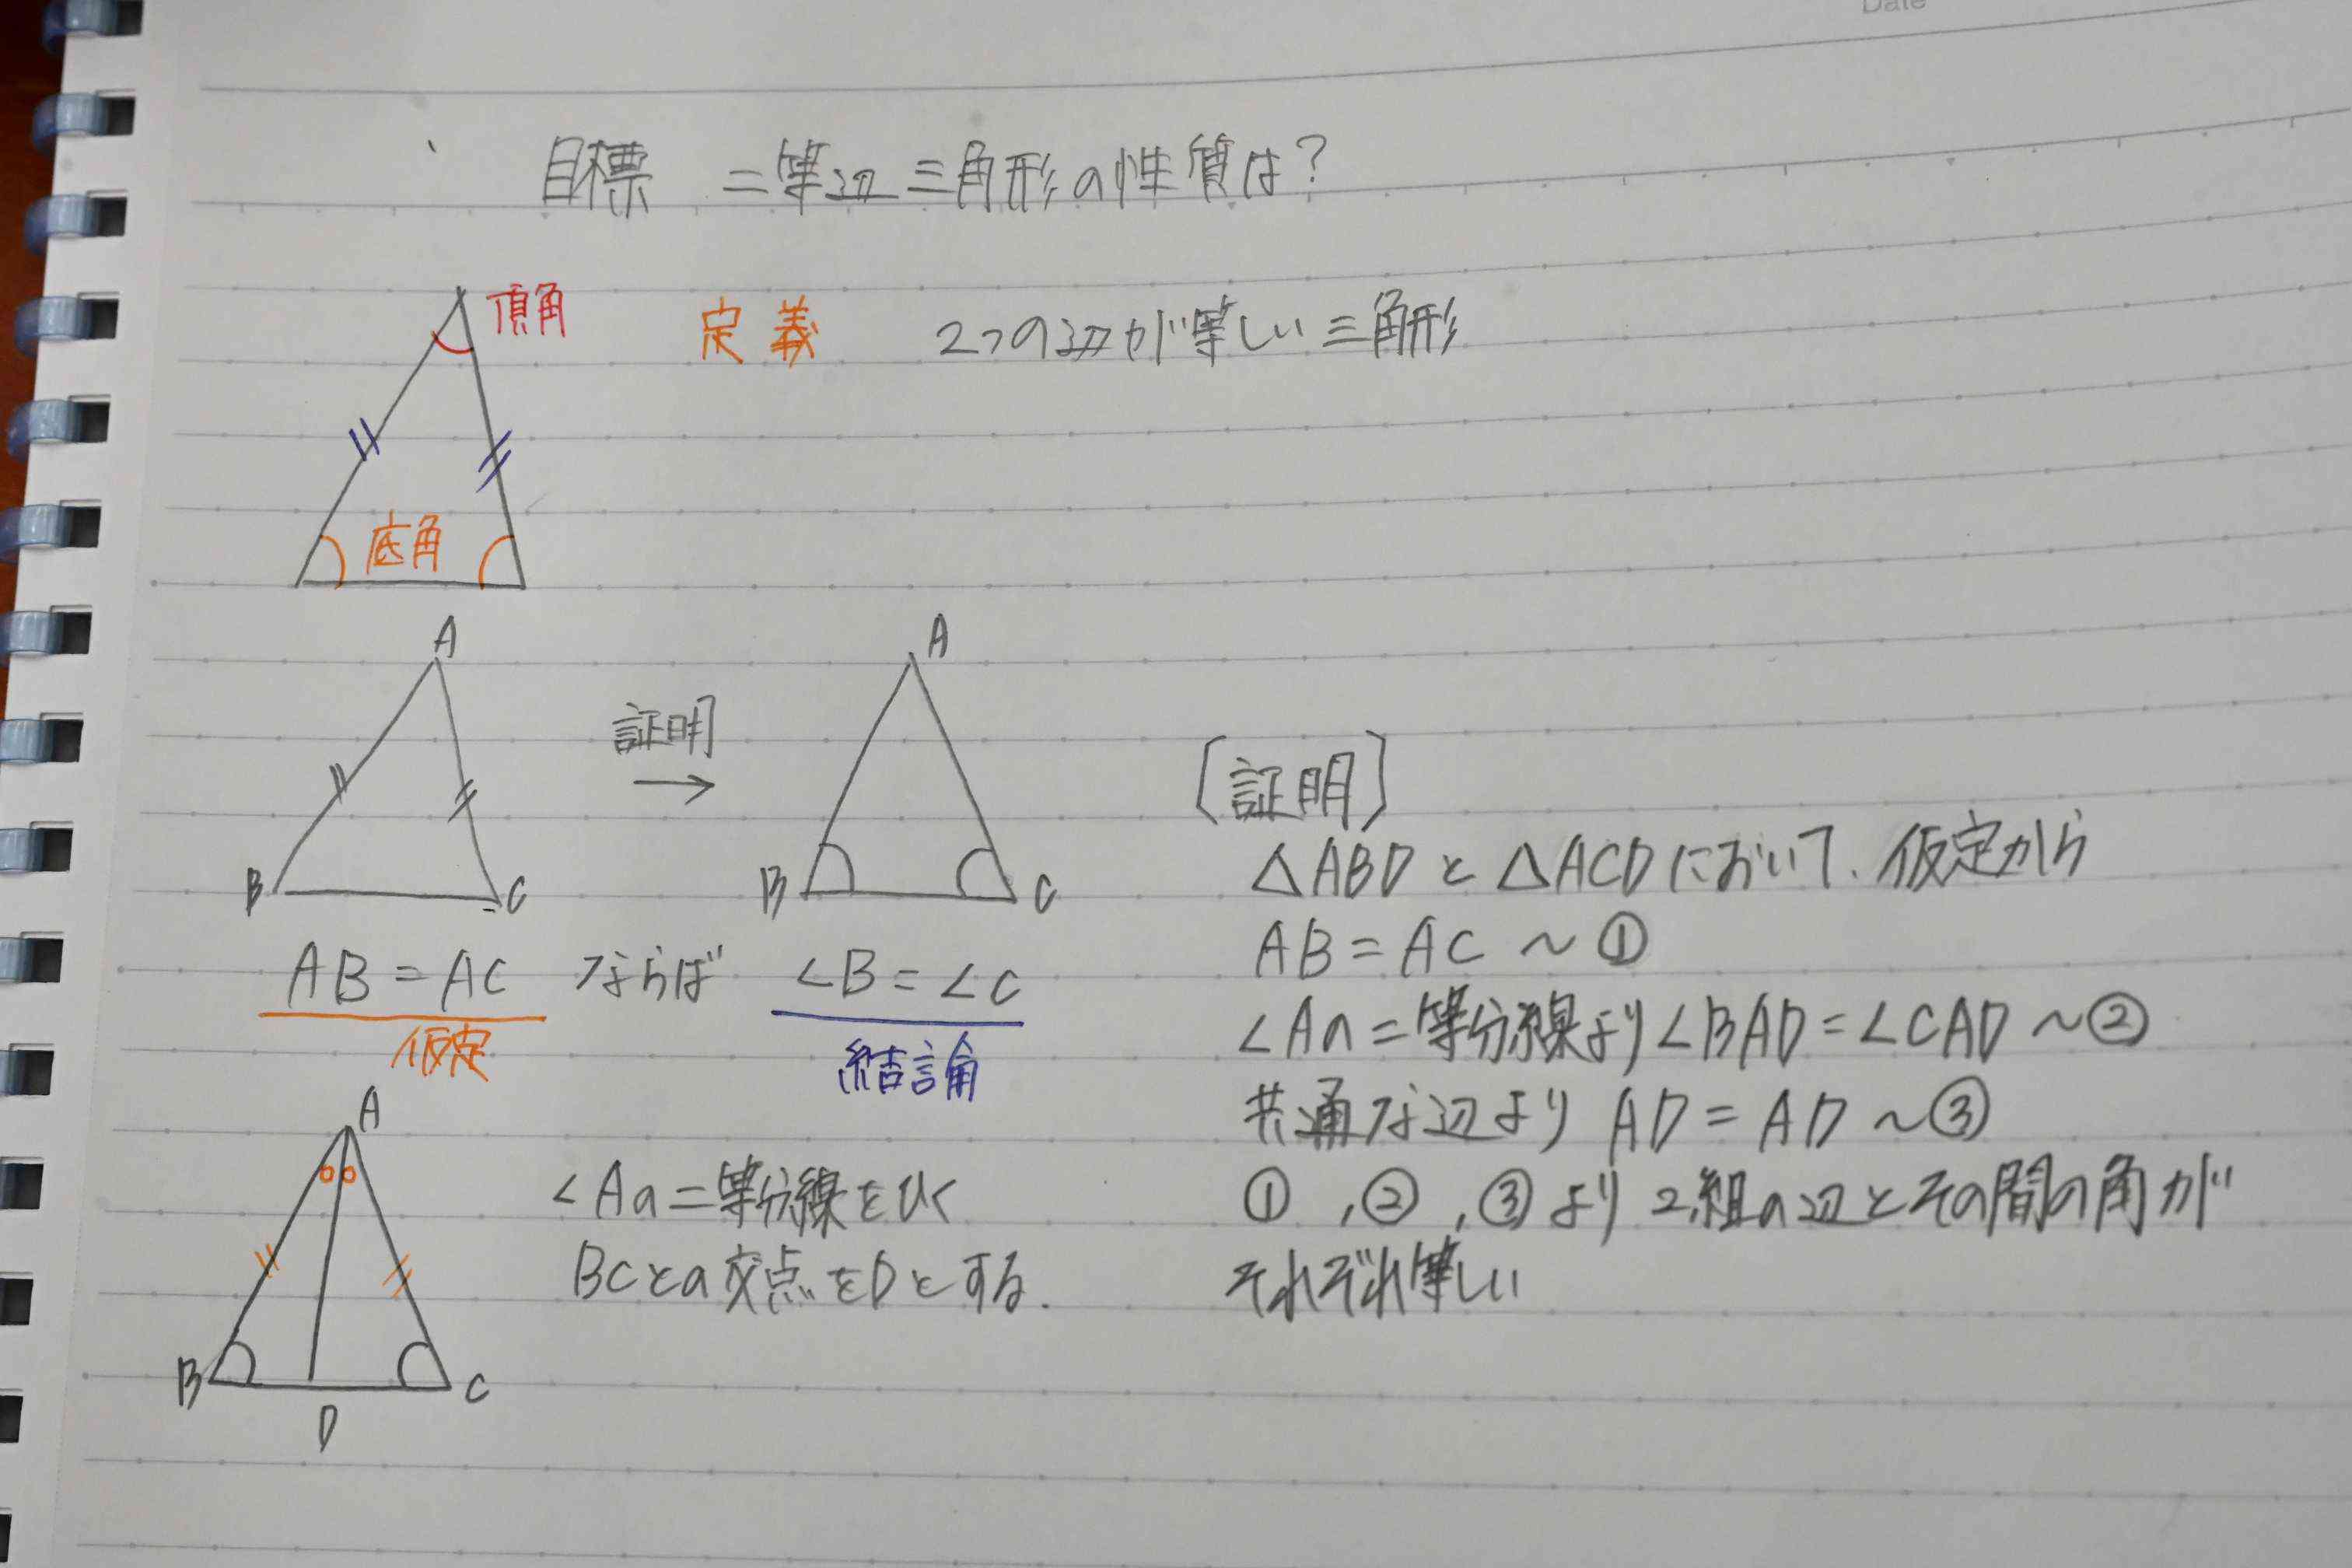 Date
目標 二等辺三角形の性質は?
頂角
定義 2つの辺が等しい三角形
底角
A
B
C
証明
→
A
B
C
AB=AC ならば ∠B=∠C
仮定
結論
A
B
C
D
∠Aの二等分線をひく
BCとの交点をDとする.
〔証明〕
△ABDと△ACDにおいて、仮定から
AB=AC ~①
∠Aの二等分線より∠BAD=∠CAD ~②
共通な辺より AD=AD ~③
①,②,③より 2組の辺とその間の角が
それぞれ等しい